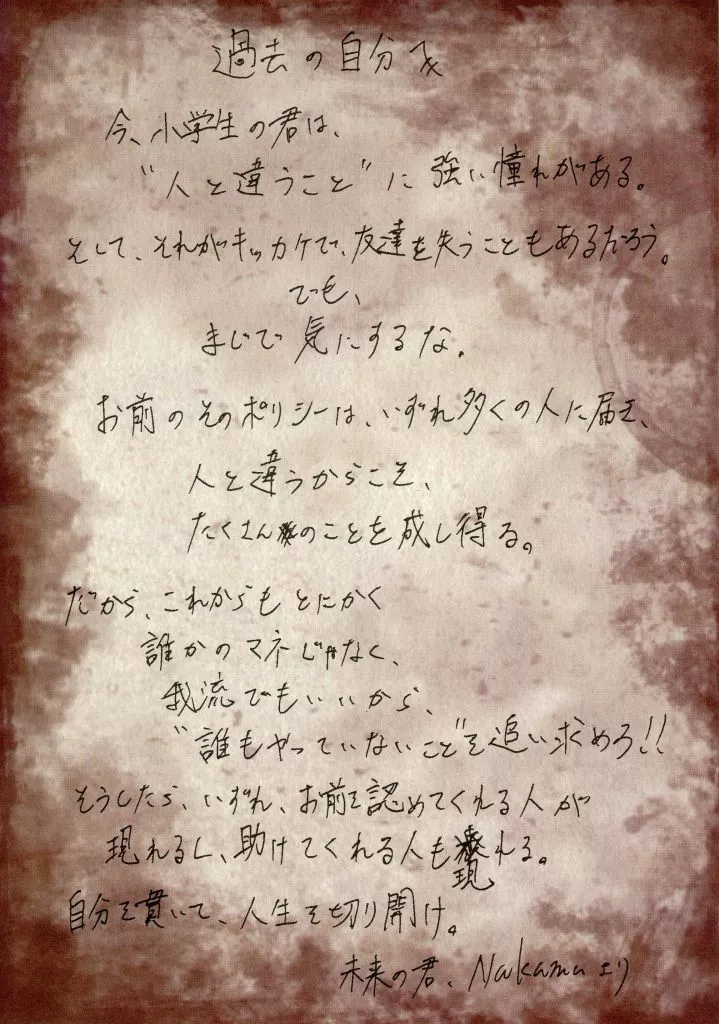 過去の自分へ
今、小学生の君は、
"人と違うこと"に強い憧れがある。
そして、それがキッカケで、友達を失うこともあるだろう。
でも、
まじで気にするな。
お前のそのポリシーは、いずれ多くの人に届き、
人と違うからこそ、
たくさんのことを成し得る。
だから、これからもとにかく
誰かのマネじゃなく、
我流でもいいから、
"誰もやっていないこと"を追い求めろ!!
そうしたら、いずれ、お前を認めてくれる人が
現れるし、助けてくれる人も現れる。
自分を貫いて、人生を切り開け。
未来の君、Nakamuより